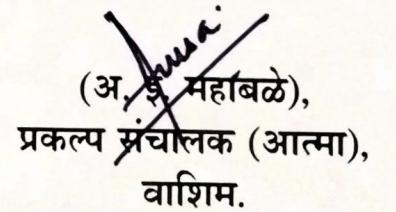 (अ. इ. महाबळे),
प्रकल्प संचालक (आत्मा),
वाशिम.